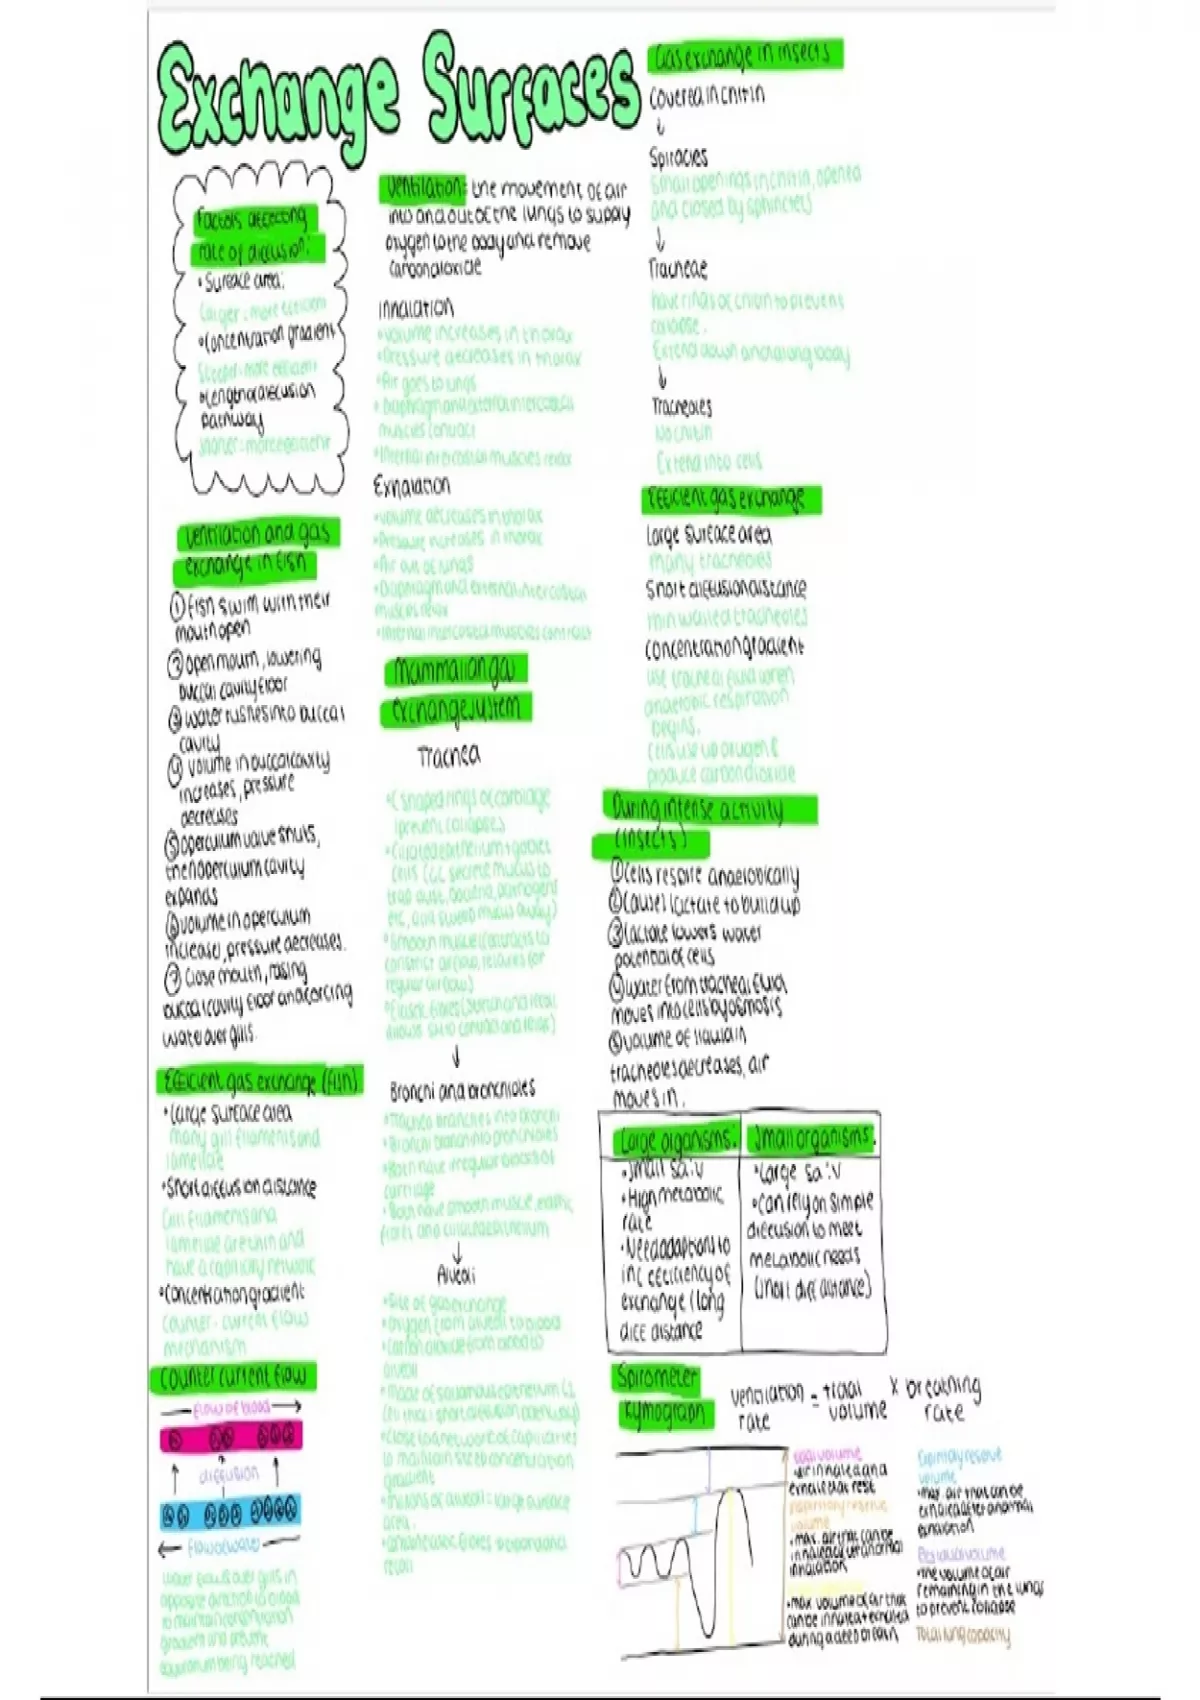 Exchange Surfaces
Factors affecting
rate of diffusion:
• Surface area:
Larger = more efficient
• Concentration gradient
Steeper = more efficient
• Length of diffusion
pathway
Shorter = more efficient
Ventilation and gas
exchange in fish
① Fish swim with their
mouth open
② open mouth, lowering
buccal cavity floor
③ water rushes into buccal
cavity
④ volume in buccal cavity
increases, pressure
decreases
⑤ operculum valve shuts,
then operculum cavity
expands
⑥ volume in operculum
increases, pressure decreases.
⑦ Close mouth, raising
buccal cavity floor and forcing
water over gills.
Efficient gas exchange (fish)
• Large surface area
many gill filaments and
lamellae
• Short diffusion distance
Gill filaments and
lamellae are thin and
have a capillary network
• Concentration gradient
counter-current flow
mechanism
Counter current flow
flow of blood
diffusion
flow of water
Water flows over gills in
opposite direction to blood
to maintain concentration
gradient and prevent
equilibrium being reached
Ventilation: the movement of air
into and out of the lungs to supply
oxygen to the body and remove
carbon dioxide
Inhalation
• Volume increases in thorax
• Pressure decreases in thorax
• Air goes to lungs
• Diaphragm and external intercostal
muscles contract
• Internal intercostal muscles relax
Exhalation
• Volume decreases in thorax
• Pressure increases in thorax
• Air out of lungs
• Diaphragm and external intercostal
muscles relax
• Internal intercostal muscles contract
Mammalian gas
exchange system
Trachea
• C shaped rings of cartilage
(prevent collapse)
• Ciliated epithelium + goblet
cells (G.C secrete mucus to
trap dust, bacteria, pathogens
etc, and sweep mucus away)
• Smooth muscle (contracts to
constrict airflow, relaxes for
regular airflow)
• Elastic fibres (stretch and recoil
allows s.m to contract and relax)
Bronchi and bronchioles
• Trachea branches into bronchi
• Bronchi branch into bronchioles
• Both have irregular blocks of
cartilage
• Both have smooth muscle, elastic
fibres and ciliated epithelium
Alveoli
• Site of gas exchange
• Oxygen from alveoli to blood
• Carbon dioxide from blood to
alveoli
• Made of squamous epithelium (1
cell thick: short diffusion pathway)
• Close to a network of capillaries
to maintain steep concentration
gradient
• millions of alveoli = large surface
area.
elastic fibres expand and
recoil
Gas exchange in insects
Covered in chitin
Spiracles
Small openings in chitin, opened
and closed by sphincters
Tracheae
have rings of chitin to prevent
collapse.
Extend down and along body
Tracheoles
No chitin
Extend into cells
Efficient gas exchange
Large surface area
many tracheoles
Short diffusion distance
thin walled tracheoles
Concentration gradient
use tracheal fluid when
anaerobic respiration
begins.
cells use up oxygen &
produce carbon dioxide
During intense activity
(insects)
① Cells respire anaerobically
② Causes lactate to build up
③ Lactate lowers water
potential of cells
④ water from tracheal fluid
moves into cells by osmosis
⑤ volume of liquid in
tracheoles decreases, air
moves in.
Large organisms:
• Small sa:v
• High metabolic
rate
• Need adaptions to
inc efficiency of
exchange (long
diff distance
Small organisms:
• Large sa:v
• Can rely on simple
diffusion to meet
metabolic needs
(short diff distance)
Spirometer
kymograph
ventilation rate = tidal volume × breathing rate
tidal volume
• air inhaled and
exhaled at rest
Inspiratory reserve
volume
• max. air that can be
inhaled after a normal
inhalation
• max volume of air that
can be inhaled + exhaled
during a deep breath
Expiratory reserve
volume
• max. air that can be
exhaled after a normal
exhalation
Residual volume
• the volume of air
remaining in the lungs
to prevent collapse
Total lung capacity